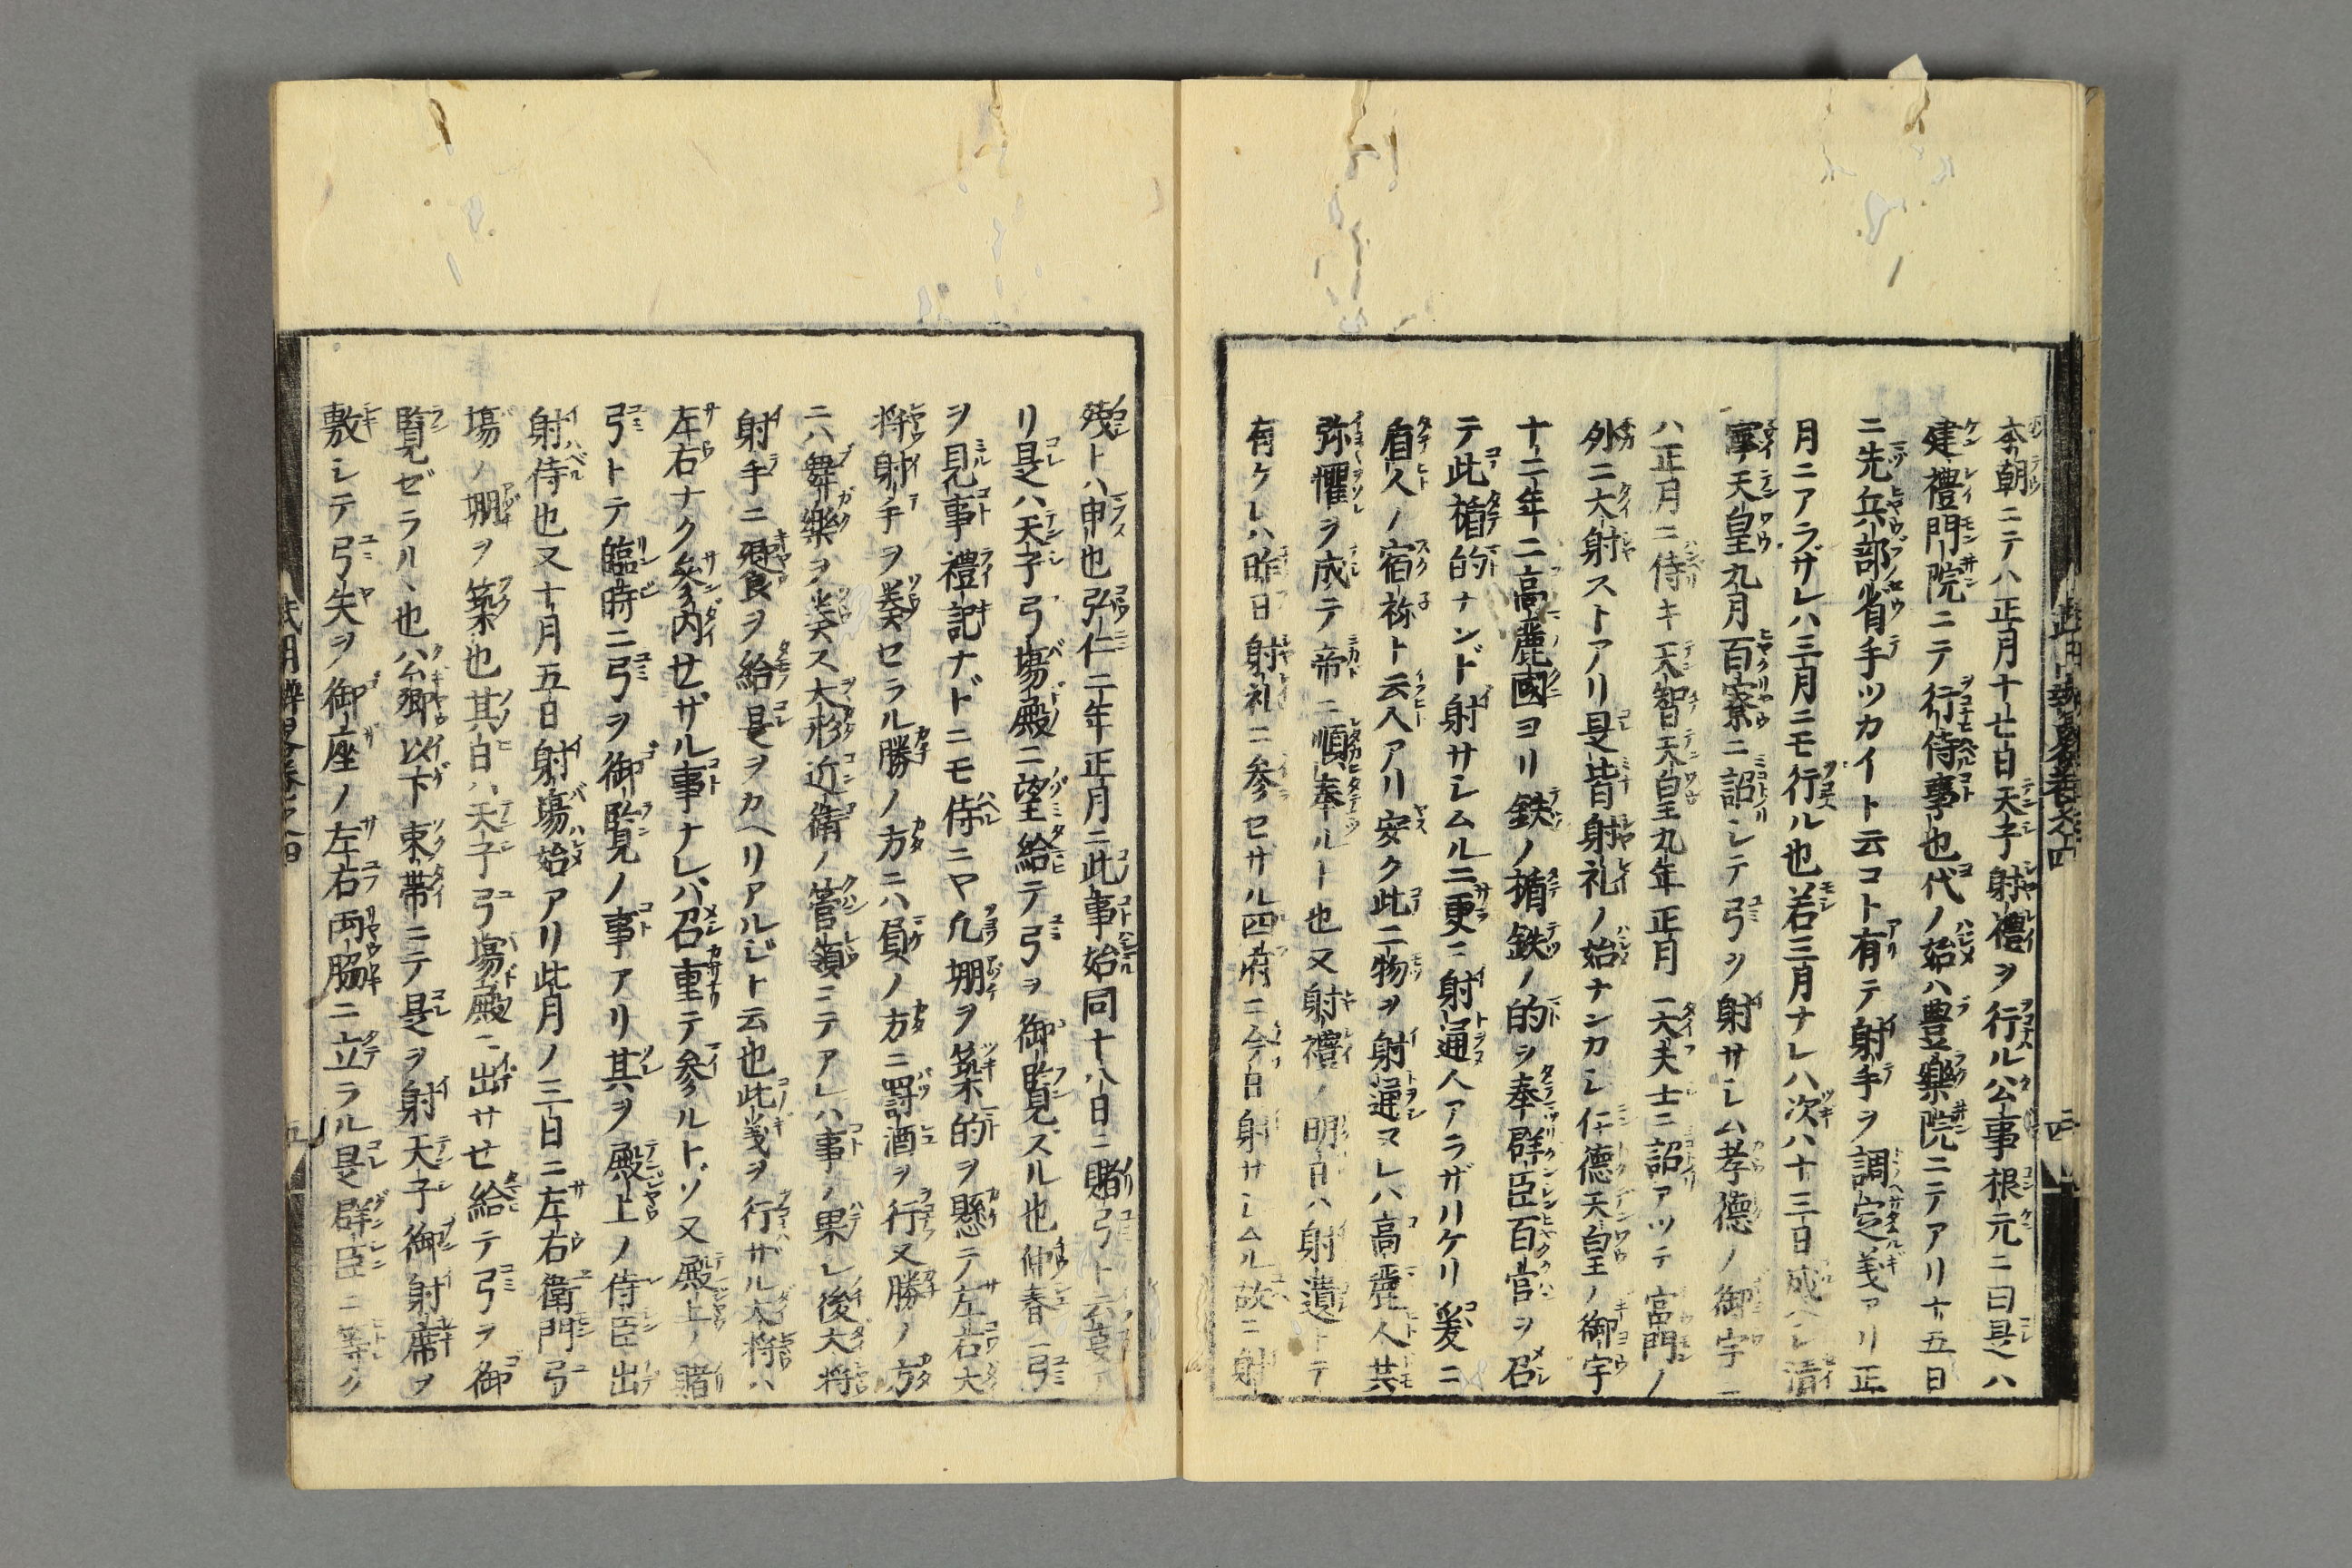 本朝ニテハ正月十七日天子射禮ヲ行ル公事根元ニ曰是ハ
建禮門院ニテ行侍事也代ノ始ハ豊樂院ニテアリ十五日
ニ先兵部省手ツカイト云コト有テ射手ヲ調定義アリ正
月ニアラザレハ三月ニモ行ル也若三月ナレハ次ハ十三日成ヘシ清
寧天皇九月百寮ニ詔シテ弓ヲ射サシム孝德ノ御宇ニ
ハ正月ニ侍キ天智天皇九年正月ニ大夫士ニ詔アツテ宮門ノ
外ニ大射ストアリ是皆射礼ノ始ナンカシ仁德天皇ノ御宇
十二年ニ高麗國ヨリ鉄ノ楯鉄ノ的ヲ奉群臣百官ヲ召
テ此楯的ナンド射サシムルニ更ニ射通人アラザリケリ爰ニ
盾人ノ宿祢ト云人アリ安ク此二物ヲ射通ヌレハ高麗人共
弥懼ヲ成テ帝ニ順奉ルト也又射禮ノ明日ハ射遺トテ
有ケレハ昨日射礼ニ参セサル四府ニ今日射サシムル故ニ射
残トハ申也弘仁二年正月ニ此事始同十八日ニ賭弓ト云事ア
リ是ハ天子弓場殿ニ望給テ弓ヲ御覧ズル也仲春ニ弓
ヲ見事禮記ナドニモ侍ニヤ凡堋ヲ築的ヲ懸テ左右大
将射手ヲ奏セラル勝ノ方ニハ負ノ方ニ罸酒ヲ行又勝ノ方
ニハ舞樂ヲ奏ス大形近衛ノ管領ニテアレハ事ノ果レ後大将
射手ニ饗ヲ給是ヲカヘリアルジト云也此義ヲ行ザル大将ハ
左右ナク参内せザル事ナレバ召重テ参ルトゾ又殿上ノ賭
弓トテ臨時ニ弓ヲ御覧ノ事アリ其ヲ殿上ノ侍臣出
射侍也又十月五日射場始アリ此月ノ三日ニ左右衛門弓
場ノ堋ヲ築也其日ハ天子弓場殿ニ出サせ給テ弓ヲ御
覧ぜラルヽ也公卿以下束帯ニテ是ヲ射天子御射席ヲ
敷シテ弓矢ヲ御座ノ左右両脇ニ立ラル是群臣ニ等ク